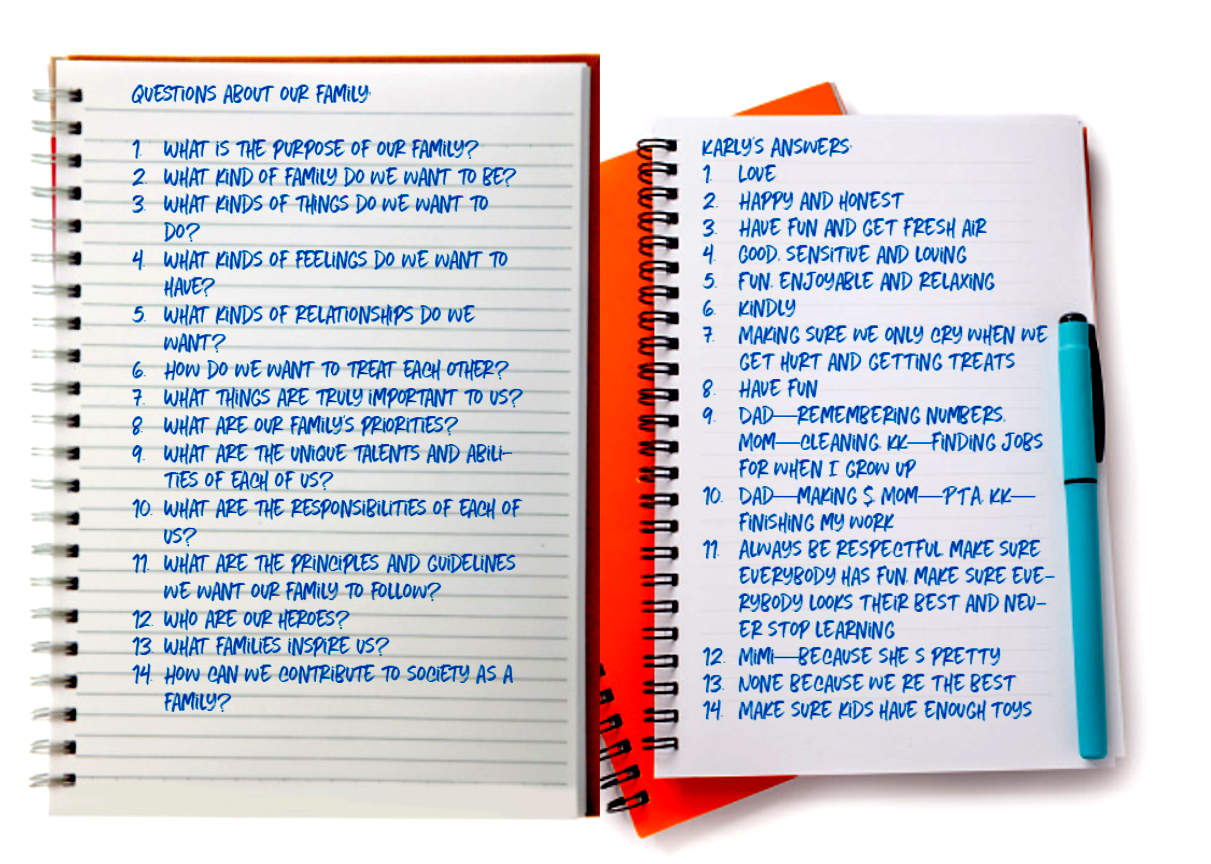 QUESTIONS ABOUT OUR FAMILY:
1. WHAT IS THE PURPOSE OF OUR FAMILY?
2. WHAT KIND OF FAMILY DO WE WANT TO BE?
3. WHAT KINDS OF THINGS DO WE WANT TO
DO?
4. WHAT KINDS OF FEELINGS DO WE WANT TO
HAVE?
5. WHAT KINDS OF RELATIONSHIPS DO WE
WANT?
6. HOW DO WE WANT TO TREAT EACH OTHER?
7. WHAT THINGS ARE TRULY IMPORTANT TO US?
8. WHAT ARE OUR FAMILY'S PRIORITIES?
9. WHAT ARE THE UNIQUE TALENTS AND ABILI-
TIES OF EACH OF US?
10. WHAT ARE THE RESPONSIBILITIES OF EACH OF
US?
11. WHAT ARE THE PRINCIPLES AND GUIDELINES
WE WANT OUR FAMILY TO FOLLOW?
12. WHO ARE OUR HEROES?
13. WHAT FAMILIES INSPIRE US?
14. HOW CAN WE CONTRIBUTE TO SOCIETY AS A
FAMILY?
KARLY'S ANSWERS:
1. LOVE
2. HAPPY AND HONEST
3. HAVE FUN AND GET FRESH AIR
4. GOOD, SENSITIVE AND LOVING
5. FUN, ENJOYABLE AND RELAXING
6. KINDLY
7. MAKING SURE WE ONLY CRY WHEN WE
GET HURT AND GETTING TREATS
8. HAVE FUN
9. DAD—REMEMBERING NUMBERS,
MOM—CLEANING, KK—FINDING JOBS
FOR WHEN I GROW UP
10. DAD—MAKING $, MOM—PTA, KK—
FINISHING MY WORK
11. ALWAYS BE RESPECTFUL, MAKE SURE
EVERYBODY HAS FUN, MAKE SURE EVE-
RYBODY LOOKS THEIR BEST AND NEV-
ER STOP LEARNING
12. MIMI—BECAUSE SHE S PRETTY
13. NONE BECAUSE WE RE THE BEST
14. MAKE SURE KIDS HAVE ENOUGH TOYS